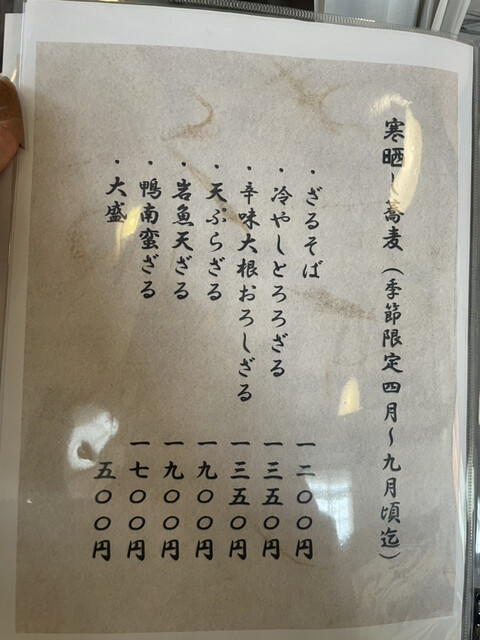 寒晒し蕎麦（季節限定四月～九月頃迄）
・ざるそば 一二〇〇円
・冷やしとろろざる 一三五〇円
・辛味大根おろしざる 一三五〇円
・天ぷらざる 一九〇〇円
・岩魚天ざる 一九〇〇円
・鴨南蛮ざる 一七〇〇円
・大盛 五〇〇円